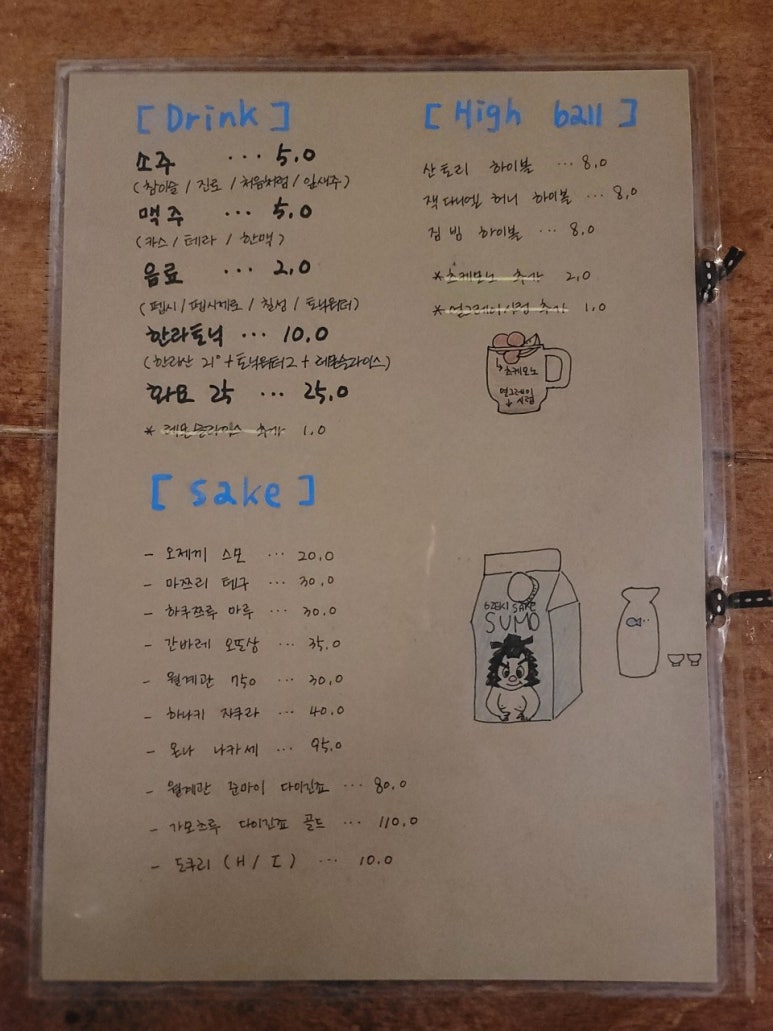 [ Drink ]
소주 ... 5.0
(참이슬 / 진로 / 처음처럼 / 잎새주)
맥주 ... 5.0
(카스 / 테라 / 한맥)
음료 ... 2.0
(펩시 / 펩시제로 / 칠성 / 토닉워터)
한라토닉 ... 10.0
(한라산 21° + 토닉워터2 + 레몬슬라이스)
화요 25 ... 25.0
* 레몬슬라이스 추가 1.0
[ High ball ]
산토리 하이볼 ... 8.0
잭다니엘 허니 하이볼 ... 8.0
짐빔 하이볼 ... 8.0
* 츠케모노 추가 2.0
* 얼그레이시럽 추가 1.0
츠케모노
얼그레이
시럽
[ Sake ]
- 오제끼 스모 ... 20.0
- 마쯔리 텐구 ... 30.0
- 하쿠쯔루 마루 ... 30.0
- 간바레 오또상 ... 35.0
- 월계관 750 ... 30.0
- 하나키 자쿠라 ... 40.0
- 온나 나카세 ... 95.0
- 월계관 준마이 다이긴죠 ... 80.0
- 가모츠루 다이긴죠 골드 ... 110.0
- 도쿠리 (H / I) ... 10.0
OZEKI SAKE
SUMO